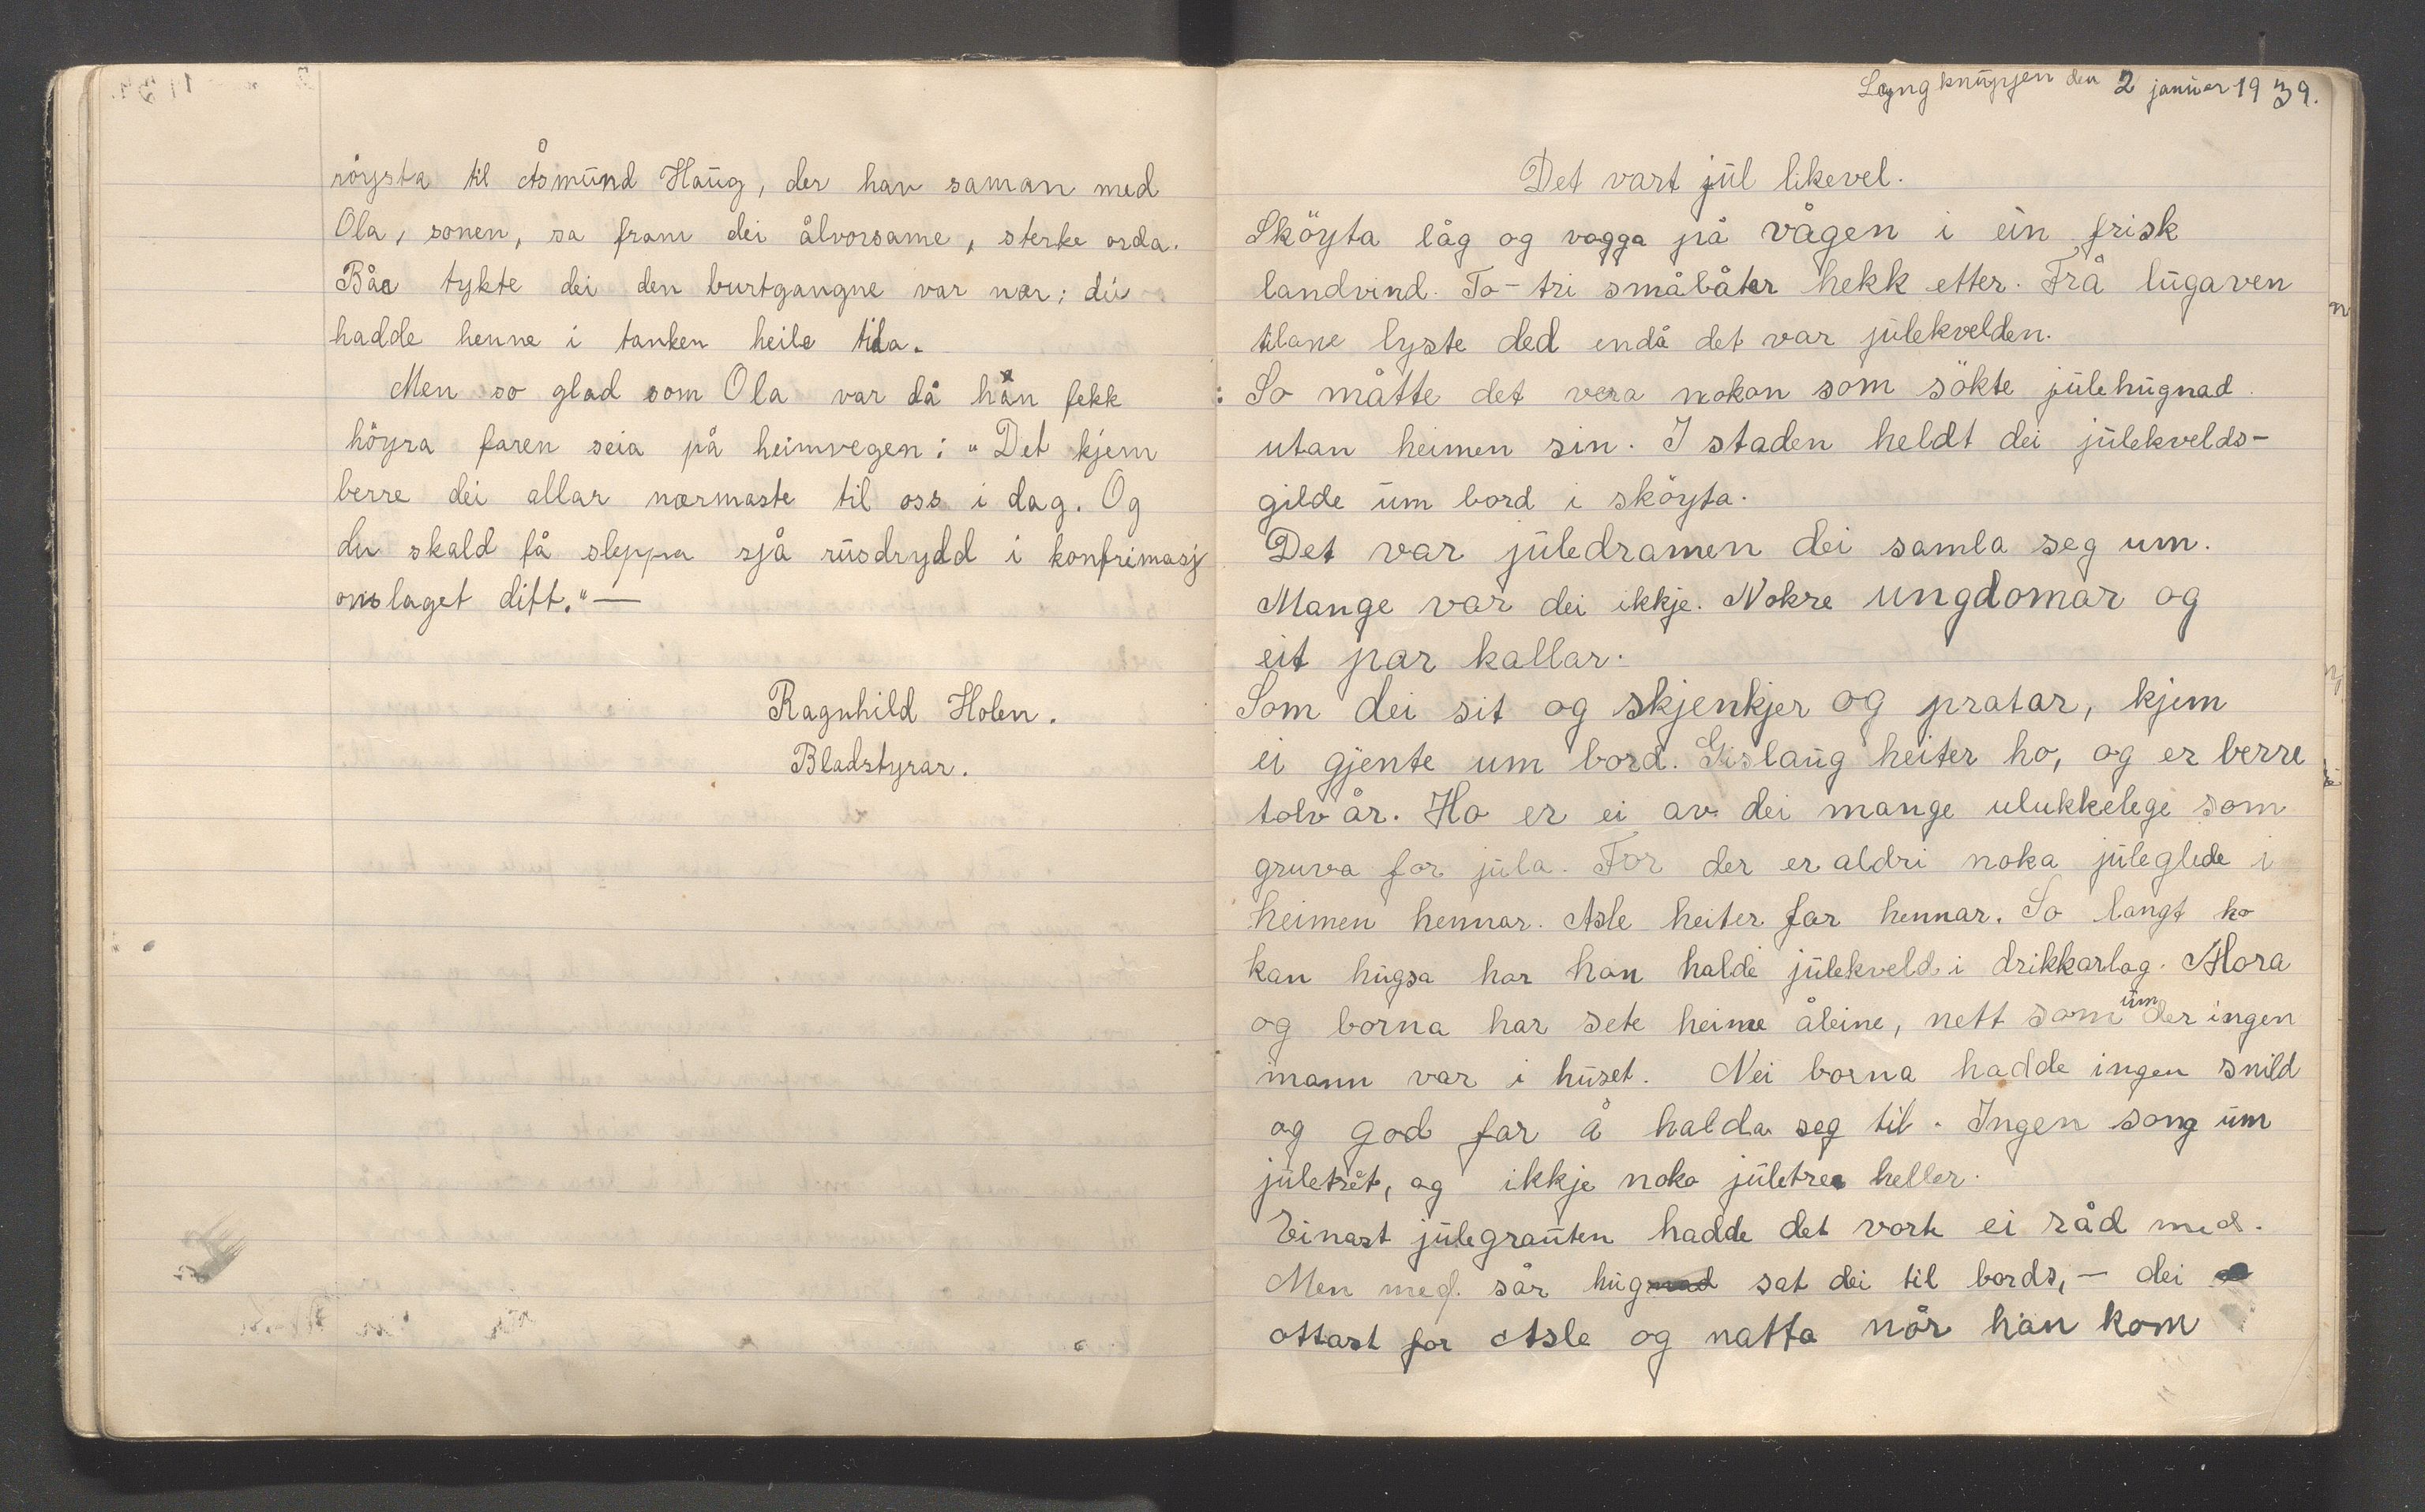 röysta til Åsmund Haug, der han saman med
Ola, sonen, sa fram dei ålvorsame, sterke orda.
Båe tykte dei den burtgangne var nær; dei
hadde henne i tanken heile tida.
Men so glad som Ola var då han fekk
höyra faren seia på heimvegen: "Det kjem
berre dei allar nærmaste til oss i dag. Og
du skald få sleppa sjå rusdrydd i konfrimasj
onslaget ditt."—
Ragnhild Holen.
Bladstyrar.
Lyngknuppen den 2 januar 1939.
Det vart jul likevel.
Sköyta låg og vogga på vågen i ein frisk
landvind. To-tri småbåter hekk etter. Frå lugaven
tilane lyste ded endå det var julekvelden.
So måtte det vera nokon som sökte julehugnad
utan heimen sin. I staden heldt dei julekvelds-
gilde um bord i sköyta.
Det var juledramen dei samla seg um.
Mange var dei ikkje. Nokre ungdomar og
eit par kallar.
Som dei sit og skjenkjer og pratar, kjem
ei gjente um bord. Gislaug heiter ho, og er berre
tolv år. Ho er ei av dei mange ulukkelege som
gruva for jula. For der er aldri noka juleglede i
heimen hennar. Asle heiter far hennar. So langt ho
kan hugsa har han halde julekveld i drikkarlag. Mora
og borna har sete heime åleine, nett som um der ingen
mann var i huset. Nei borna hadde ingen snild
og god far å halda seg til. Ingen song um
juletret, og ikkje noko juletre heller.
Einast julegrauten hadde det vorte ei råd med.
Men med sår hug sat dei til bords, — dei
ottast for Asle og natta når han kom